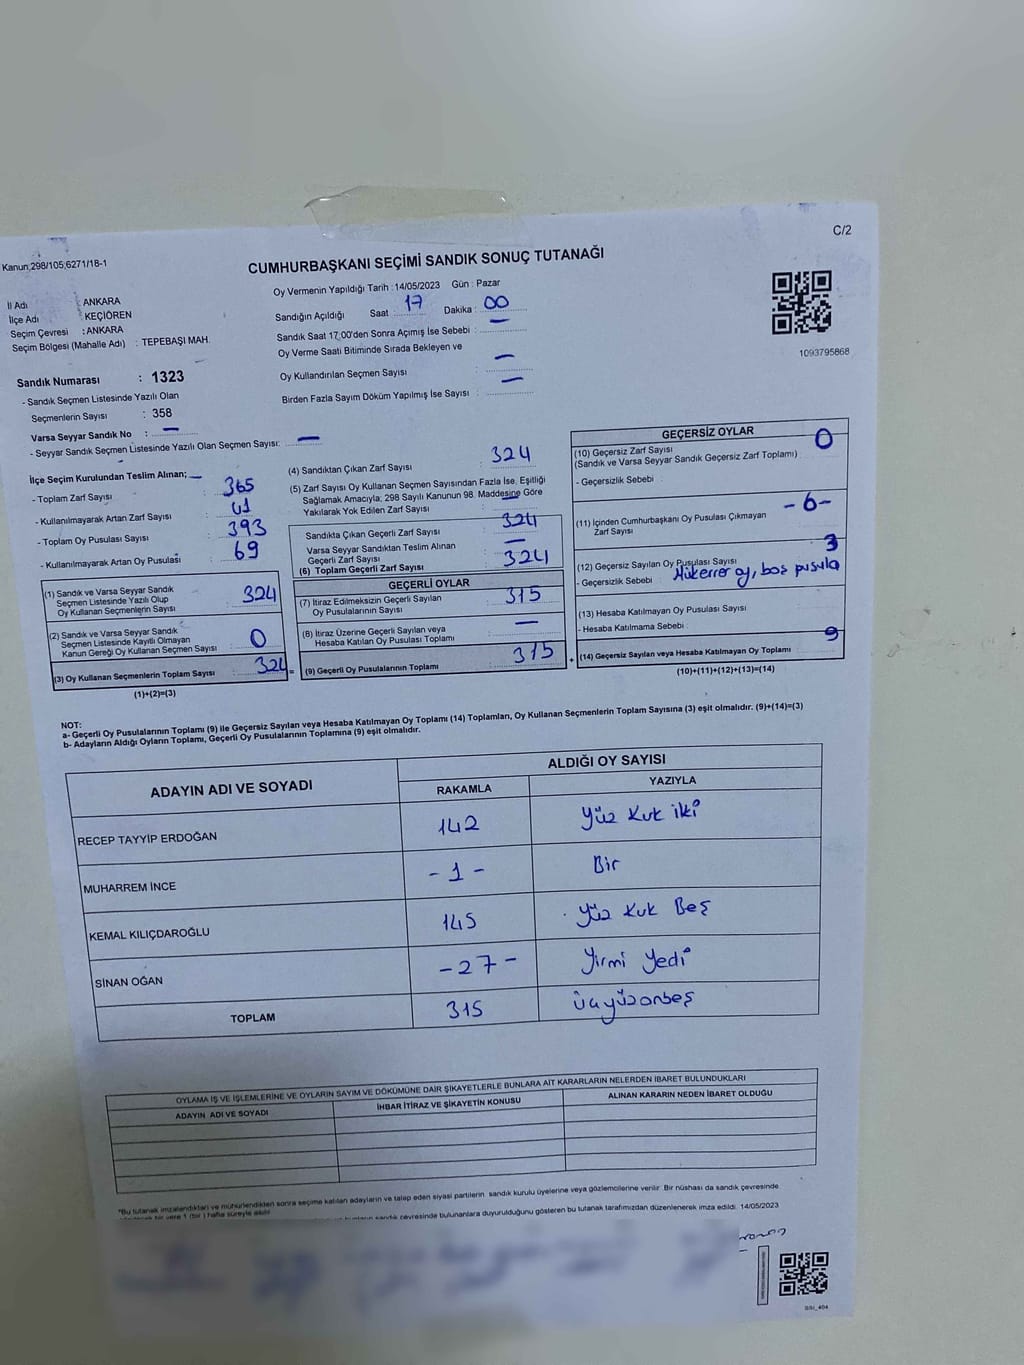 C/2
Kanun;298/105;6271/18-1
CUMHURBAŞKANI SEÇİMİ SANDIK SONUÇ TUTANAĞI
İl Adı : ANKARA
İlçe Adı : KEÇİÖREN
Seçim Çevresi : ANKARA
Seçim Bölgesi (Mahalle Adı) : TEPEBAŞI MAH.
Oy Vermenin Yapıldığı Tarih :14/05/2023 Gün : Pazar
Sandığın Açıldığı Saat 17 Dakika : 00
Sandık Saat 17:00'den Sonra Açımış İse Sebebi : —
Oy Verme Saati Bitiminde Sırada Bekleyen ve
Oy Kullandırılan Seçmen Sayısı : —
Birden Fazla Sayım Döküm Yapılmış İse Sayısı : —
1093795868
Sandık Numarası : 1323
- Sandık Seçmen Listesinde Yazılı Olan
Seçmenlerin Sayısı : 358
Varsa Seyyar Sandık No : —
- Seyyar Sandık Seçmen Listesinde Yazılı Olan Seçmen Sayısı: —
İlçe Seçim Kurulundan Teslim Alınan; —
- Toplam Zarf Sayısı : 365
- Kullanılmayarak Artan Zarf Sayısı : 41
- Toplam Oy Pusulası Sayısı : 393
- Kullanılmayarak Artan Oy Pusulası : 69
(1) Sandık ve Varsa Seyyar Sandık
Seçmen Listesinde Yazılı Olup
Oy Kullanan Seçmenlerin Sayısı : 324
(2) Sandık ve Varsa Seyyar Sandık
Seçmen Listesinde Kayıtlı Olmayan
Kanun Gereği Oy Kullanan Seçmen Sayısı : 0
(3) Oy Kullanan Seçmenlerin Toplam Sayısı : 324
(1)+(2)=(3)
(4) Sandıktan Çıkan Zarf Sayısı : 324
(5) Zarf Sayısı Oy Kullanan Seçmen Sayısından Fazla İse, Eşitliği
Sağlamak Amacıyla; 298 Sayılı Kanunun 98. Maddesine Göre
Yakılarak Yok Edilen Zarf Sayısı : —
Sandıkta Çıkan Geçerli Zarf Sayısı : 324
Varsa Seyyar Sandıktan Teslim Alınan
Geçerli Zarf Sayısı : —
(6) Toplam Geçerli Zarf Sayısı : 324
GEÇERLİ OYLAR
(7) İtiraz Edilmeksizin Geçerli Sayılan
Oy Pusulalarının Sayısı : 315
(8) İtiraz Üzerine Geçerli Sayılan veya
Hesaba Katılan Oy Pusulası Toplamı : —
= (9) Geçerli Oy Pusulalarının Toplamı : 315
GEÇERSİZ OYLAR
(10) Geçersiz Zarf Sayısı
(Sandık ve Varsa Seyyar Sandık Geçersiz Zarf Toplamı) : 0
- Geçersizlik Sebebi :
(11) İçinden Cumhurbaşkanı Oy Pusulası Çıkmayan
Zarf Sayısı : -6-
(12) Geçersiz Sayılan Oy Pusulası Sayısı : 3
- Geçersizlik Sebebi : Mükerrer oy, boş pusula
(13) Hesaba Katılmayan Oy Pusulası Sayısı :
- Hesaba Katılmama Sebebi :
+ (14) Geçersiz Sayılan veya Hesaba Katılmayan Oy Toplamı : 9
(10)+(11)+(12)+(13)=(14)
NOT:
a- Geçerli Oy Pusulalarının Toplamı (9) ile Geçersiz Sayılan veya Hesaba Katılmayan Oy Toplamı (14) Toplamları, Oy Kullanan Seçmenlerin Toplam Sayısına (3) eşit olmalıdır. (9)+(14)=(3)
b- Adayların Aldığı Oyların Toplamı, Geçerli Oy Pusulalarının Toplamına (9) eşit olmalıdır.
ADAYIN ADI VE SOYADI ALDIĞI OY SAYISI
RAKAMLA YAZIYLA
RECEP TAYYİP ERDOĞAN 142 Yüz kırk iki
MUHARREM İNCE -1- Bir
KEMAL KILIÇDAROĞLU 145 Yüz kırk Beş
SİNAN OĞAN -27- Yirmi Yedi
TOPLAM 315 üçyüzonbeş
OYLAMA İŞ VE İŞLEMLERİNE VE OYLARIN SAYIM VE DÖKÜMÜNE DAİR ŞİKAYETLERLE BUNLARA AİT KARARLARIN NELERDEN İBARET BULUNDUKLARI
ADAYIN ADI VE SOYADI İHBAR İTİRAZ VE ŞİKAYETİN KONUSU ALINAN KARARIN NEDEN İBARET OLDUĞU
*Bu tutanak imzalandıktan ve mühürlendikten sonra seçime katılan adayların ve talep eden siyasi partilerin sandık kurulu üyelerine veya gözlemcilerine verilir. Bir nüshası da sandık çevresinde
bir yere 1 (bir ) hafta süreyle asılır.
sandık çevresinde bulunanlara duyurulduğunu gösteren bu tutanak tarafımızdan düzenlenerek imza edildi. 14/05/2023
SSI_404